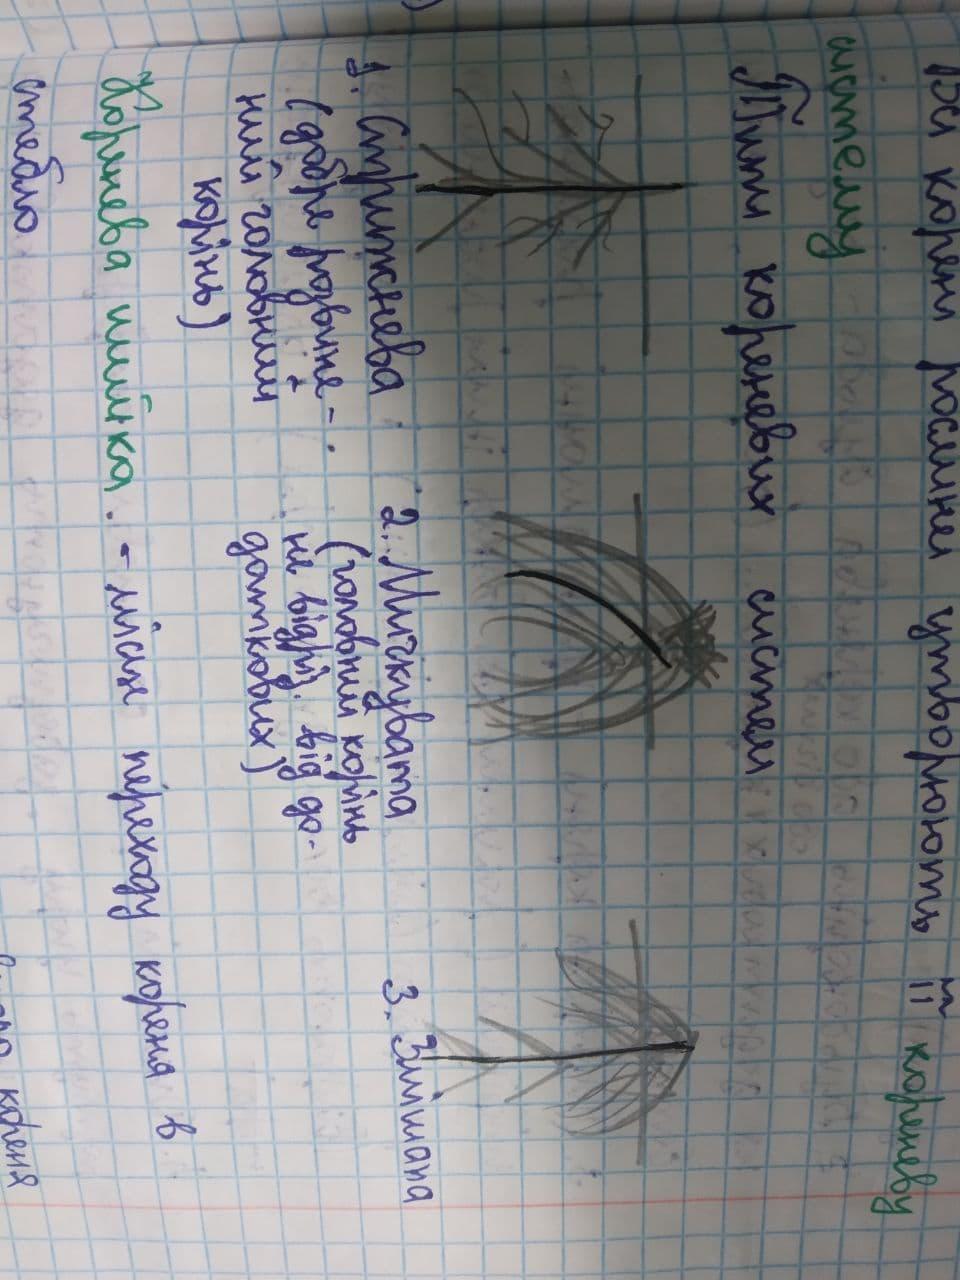 Всі корені рослини утворюють її кореневу
систему
Типи кореневих систем
1. Стрижнева
(добре розвине-
ний головний
корінь)
2. Мичкувата
(головний корінь
не відріз. від до-
даткових)
3. Змішана
Коренева шийка - місце переходу кореня в
стебло
кореня